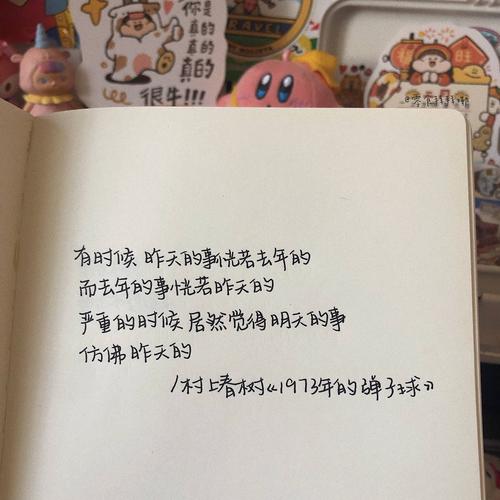 你是
真的
真的
真的
很牛!!!
TRAVEL
旺
有时候 昨天的事恍若去年的
而去年的事恍若昨天的
严重的时候 居然觉得明天的事
仿佛昨天的
/村上春树《1973年的弹子球》